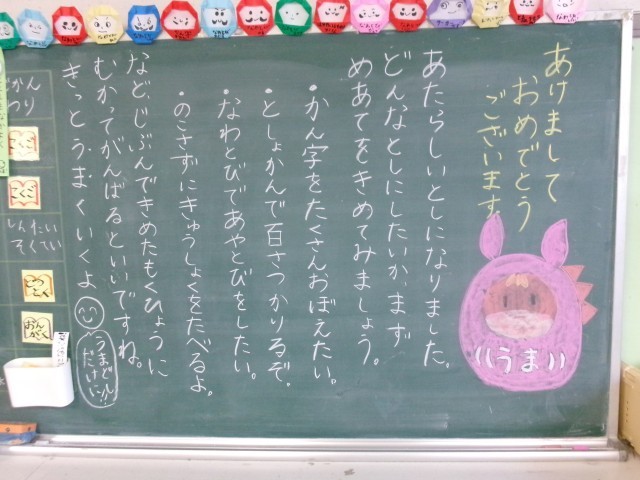 あけまして
おめでとう
ございます
うま
あたらしいとしになりました。
どんなとしにしたいか、まず
めあてをきめてみましょう。
・かん字をたくさんおぼえたい。
・としょかんで百さつかりるぞ。
・なわとびであやとびをしたい。
・のこさずにきゅうしょくをたべるよ。
などじぶんできめたもくひょうに
むかってがんばるといいですね。
きっとうまくいくよ
うまどし
だけに!!
こくご
こくご
しんたい
そくてい
おんがく